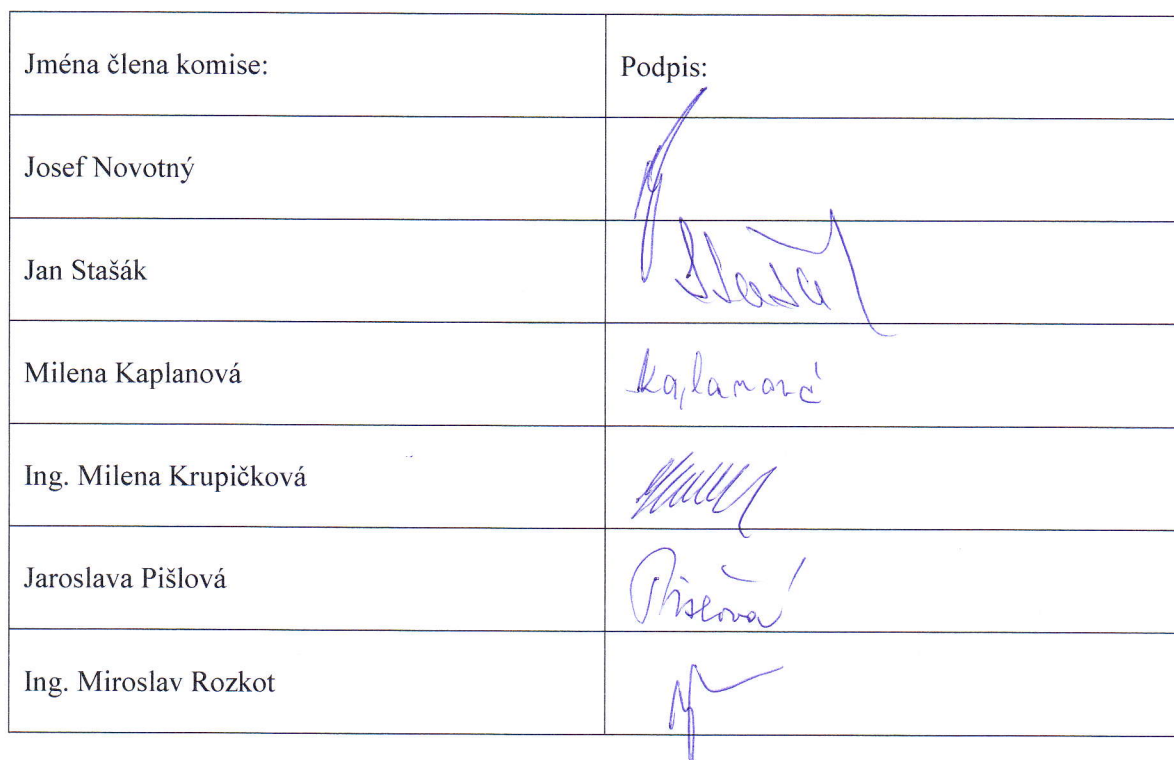 Jména člena komise: Podpis:
Josef Novotný
Jan Stašák
Milena Kaplanová Kaplanová
Ing. Milena Krupičková
Jaroslava Pišlová Pišlová
Ing. Miroslav Rozkot